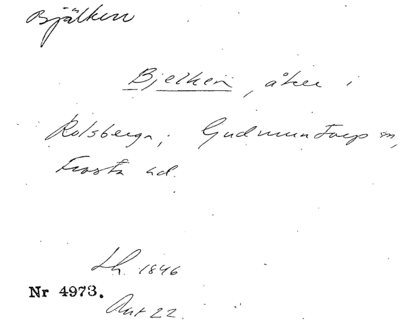 Bjälken
Bjelken, åker i
Rolsberga, Gudmuntorp sn,
Frosta hd.
Lh. 1846
Nr 4973.
Ant 22.